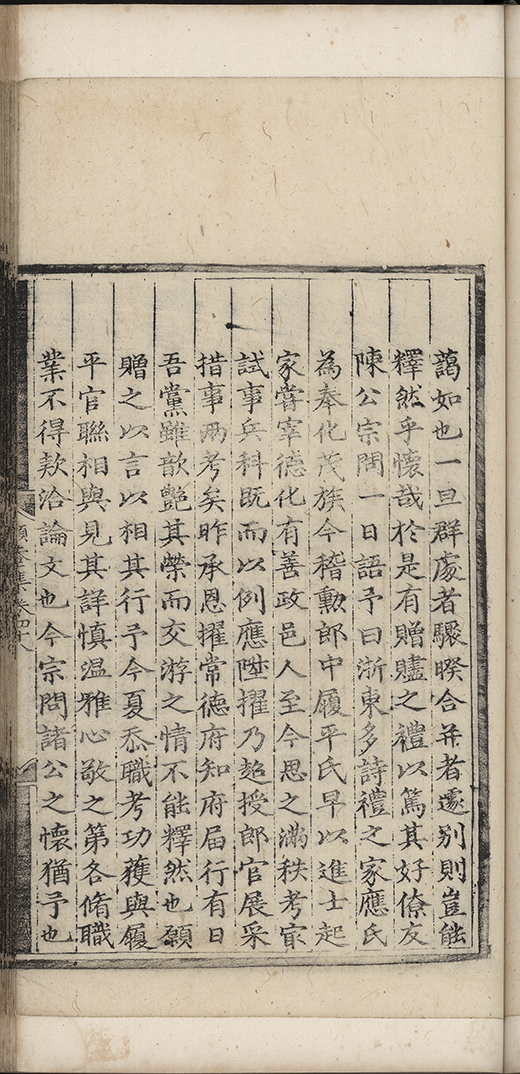 藹如也一旦群處者驟暌合并者遽别則豈能
釋然乎懷哉於是有贈贐之禮以篤其好僚友
陳公宗問一日語予曰浙東多詩禮之家應氏
為奉化茂族今稽勳郎中履平氏早以進士起
家嘗宰德化有善政邑人至今思之滿秩考㝡
試事兵科既而以例應陞擢乃超授郎官展采
措事兩考矣昨承恩擢常德府知府屆行有日
吾黨雖歆艶其榮而交游之情不能釋然也願
贈之以言以相其行予今夏忝職考功獲與履
平官聯相與見其詳慎温雅心敬之第各脩職
業不得欵洽論文也今宗問諸公之懷猶予也
頤菴集 卷四